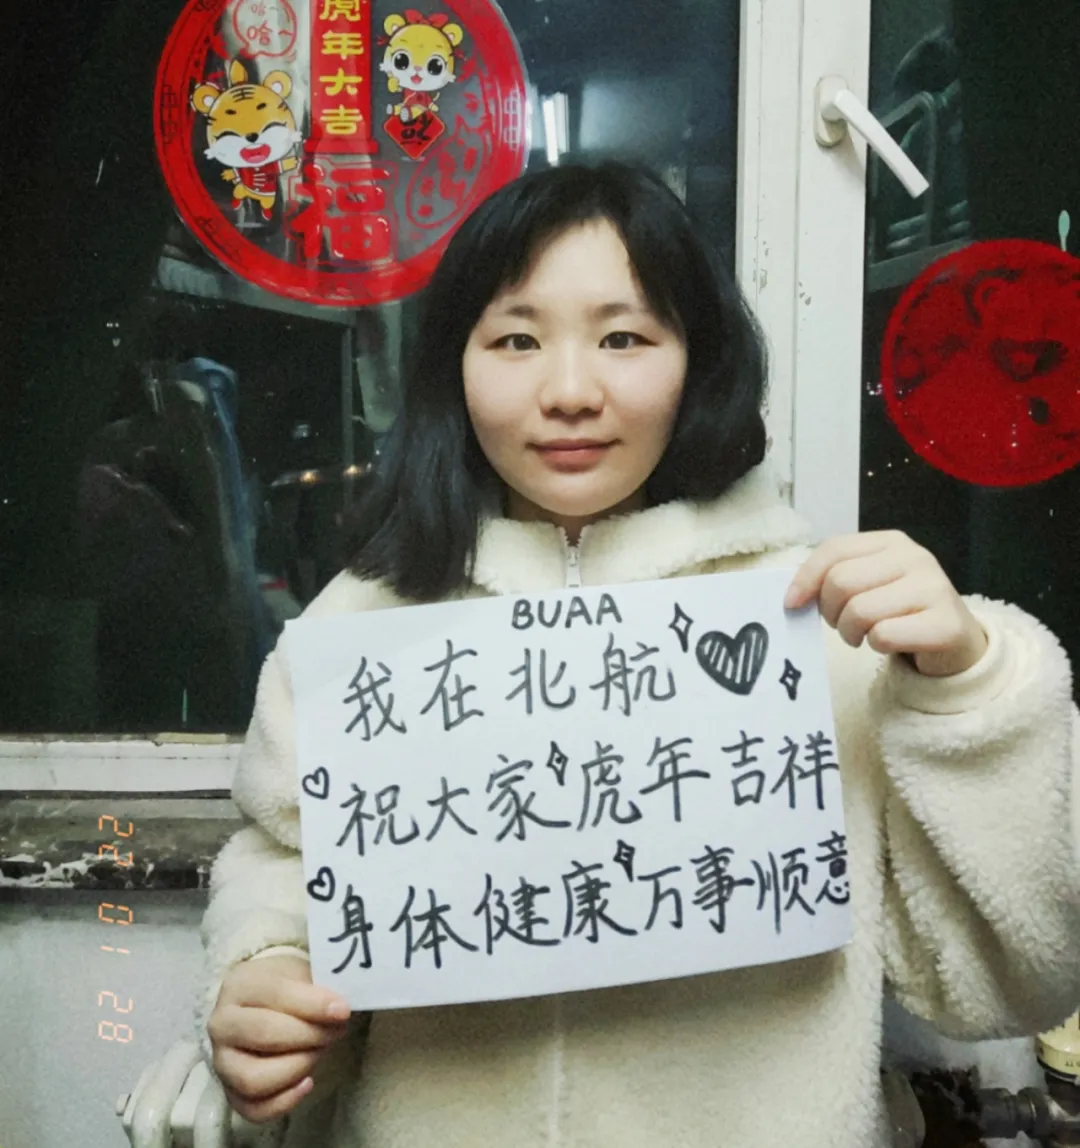 哈哈
虎年大吉
福
BUAA
我在北航
祝大家虎年吉祥
身体健康万事顺意
22 01 28